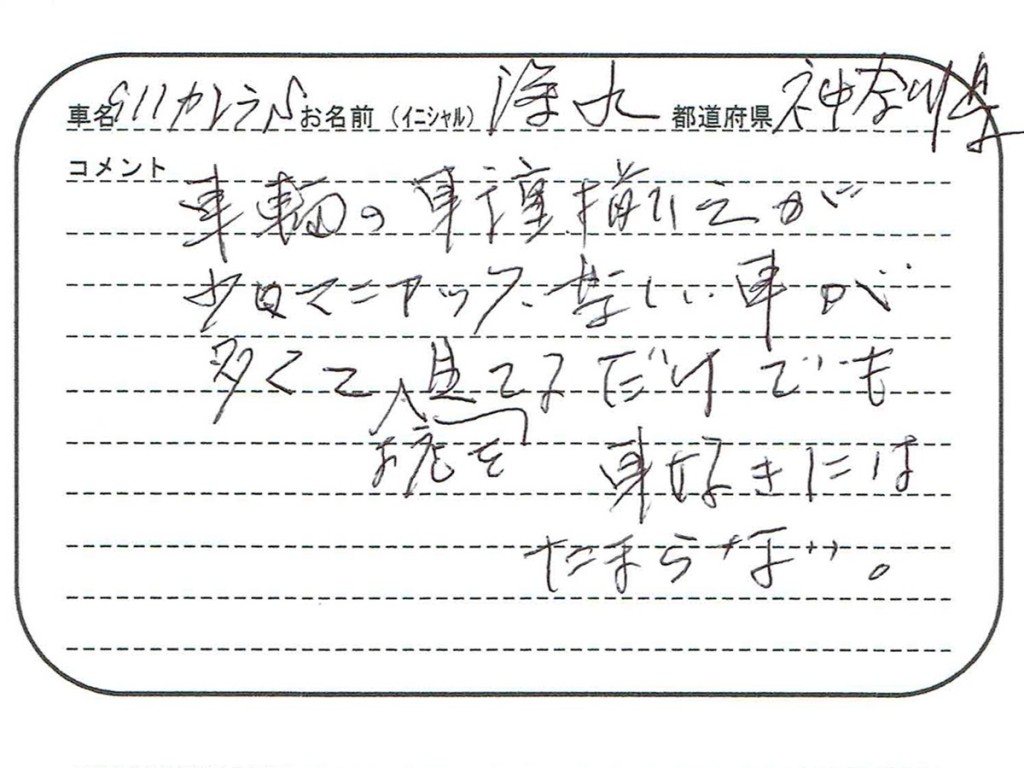 車名 911カレラS お名前（イニシャル） 都道府県 神奈川県
コメント
車輌の車種揃えが
マニアック、楽しい車が
多くて見てるだけでも
お店を
車好きには
たまらない。